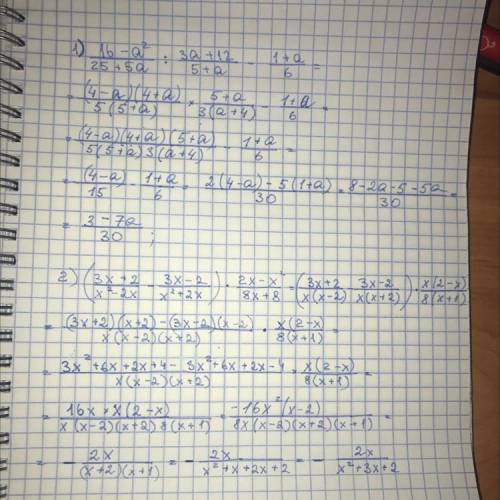 1) (16-a²)/(25+5a) : (3a+12)/(5+a) - (1+a)/6 =
= (4-a)(4+a)/5(5+a) × (5+a)/3(a+4) - (1+a)/6 =
= (4-a)(4+a)(5+a)/5(5+a)3(a+4) - (1+a)/6 =
= (4-a)/15 - (1+a)/6 = (2(4-a)-5(1+a))/30 = (8-2a-5-5a)/30 =
= (3-7a)/30 ;
2) ((3x+2)/(x²-2x) - (3x-2)/(x²+2x)) · (2x-x²)/(8x+8) = ((3x+2)/x(x-2) - (3x-2)/x(x+2)) · x(2-x)/8(x+1)
= ((3x+2)(x+2)-(3x-2)(x-2))/x(x-2)(x+2) · x(2-x)/8(x+1) =
= (3x²+6x+2x+4-3x²+6x+2x-4)/x(x-2)(x+2) · x(2-x)/8(x+1) =
= 16x · x(2-x)/x(x-2)(x+2)8(x+1) = -16x²(x-2)/8x(x-2)(x+2)(x+1) =
= - 2x/(x+2)(x+1) = - 2x/(x²+x+2x+2) = - 2x/(x²+3x+2)